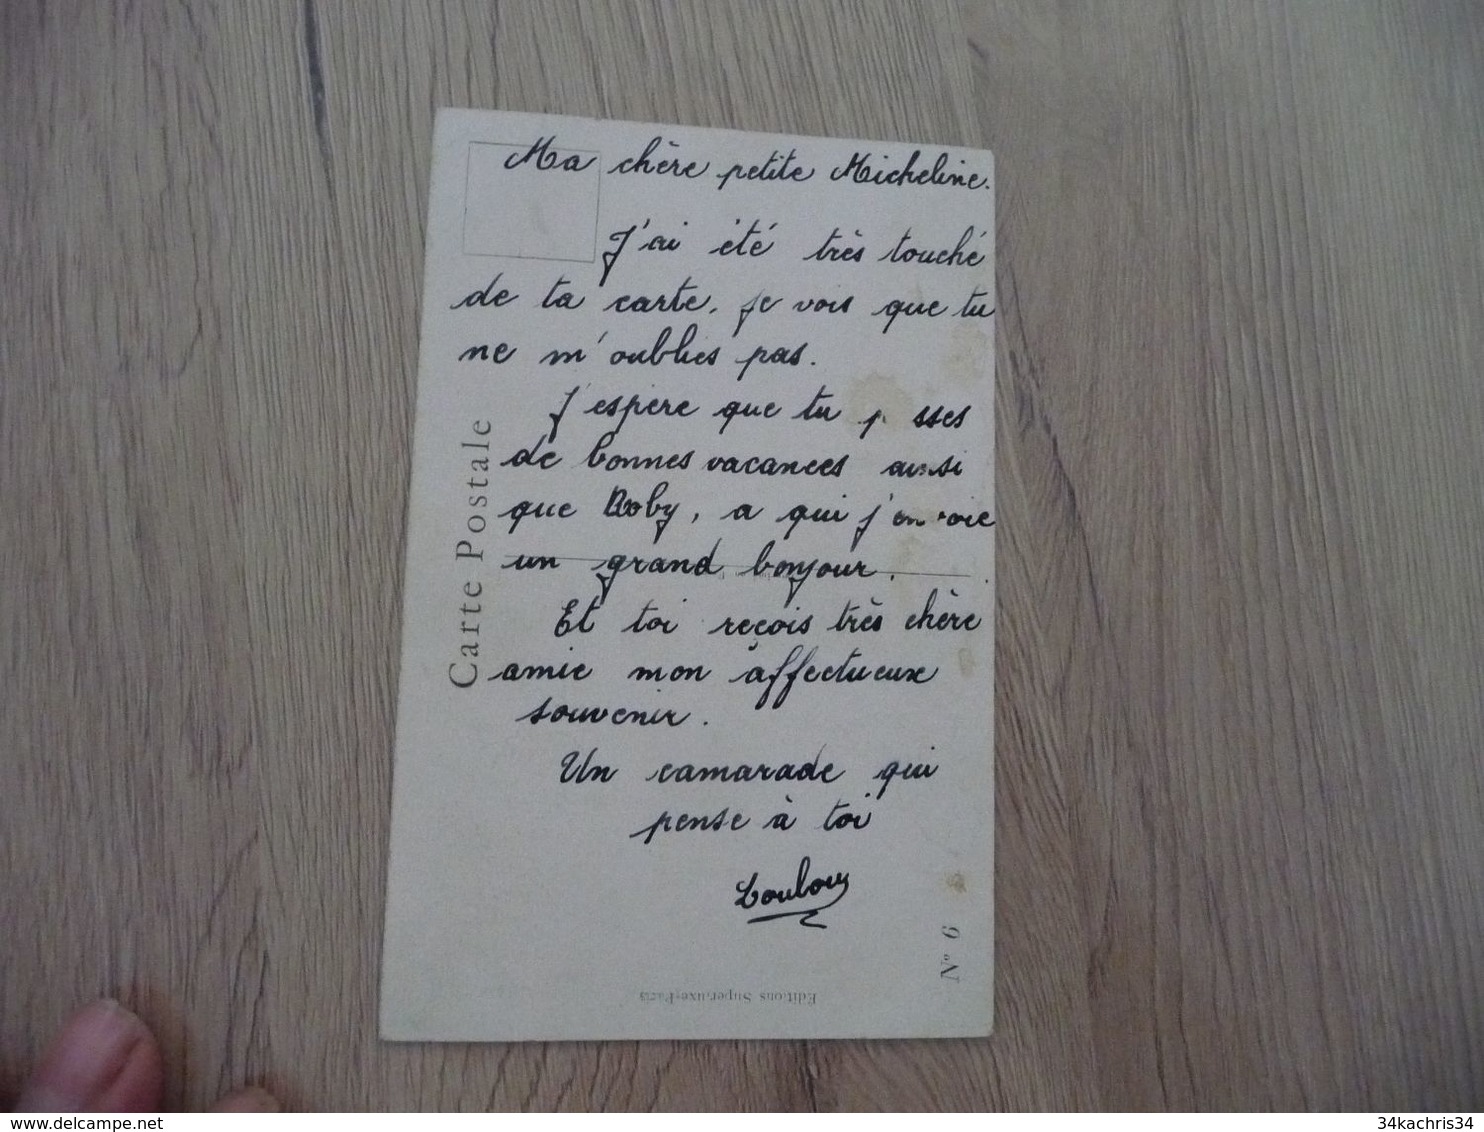 Ma chère petite Micheline.
J'ai été très touché
de ta carte, je vois que tu
ne m'oublies pas.
J'espère que tu p sses
de bonnes vacances ainsi
que Roby, a qui j'envoie
un grand bonjour.
Et toi reçois très chère
amie mon affectueux
souvenir.
Un camarade qui
pense à toi
Loulou
Carte Postale
N° 6
Editions Superluxe-Paris
delcampe.net
34kachris34